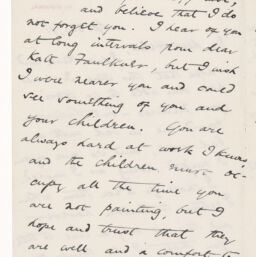 and believe that I do
not forget you. I hear of you
at long intervals from dear
Kate Faulkner, but I wish
I were nearer you and could
see something of you and
your children. You are
always hard at work I know,
and the children must oc-
cupy all the time you
are not painting, but I
hope and trust that they
are well and a comfort to